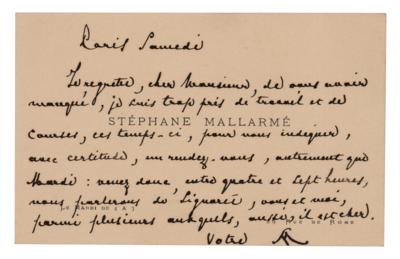 Paris Samedi
Je regrette, cher Monsieur, de vous avoir
manqué, je suis trop pris de travail et de
STÉPHANE MALLARMÉ
courses, ces temps-ci, pour vous indiquer,
avec certitude, un rendez-vous, autrement que
Mardi : venez donc, entre quatre et sept heures,
nous parlerons de Ligarée, vous et moi,
LE MARDI DE 4 A 7
RUE DE ROME
parmi plusieurs auxquels, aussi, il est cher.
Votre